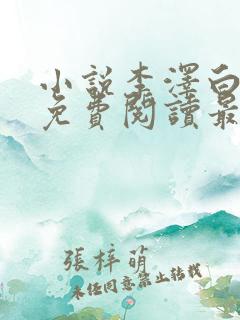 小說李澤白
免費閱讀最
張梓萌
未經同意禁止轉載